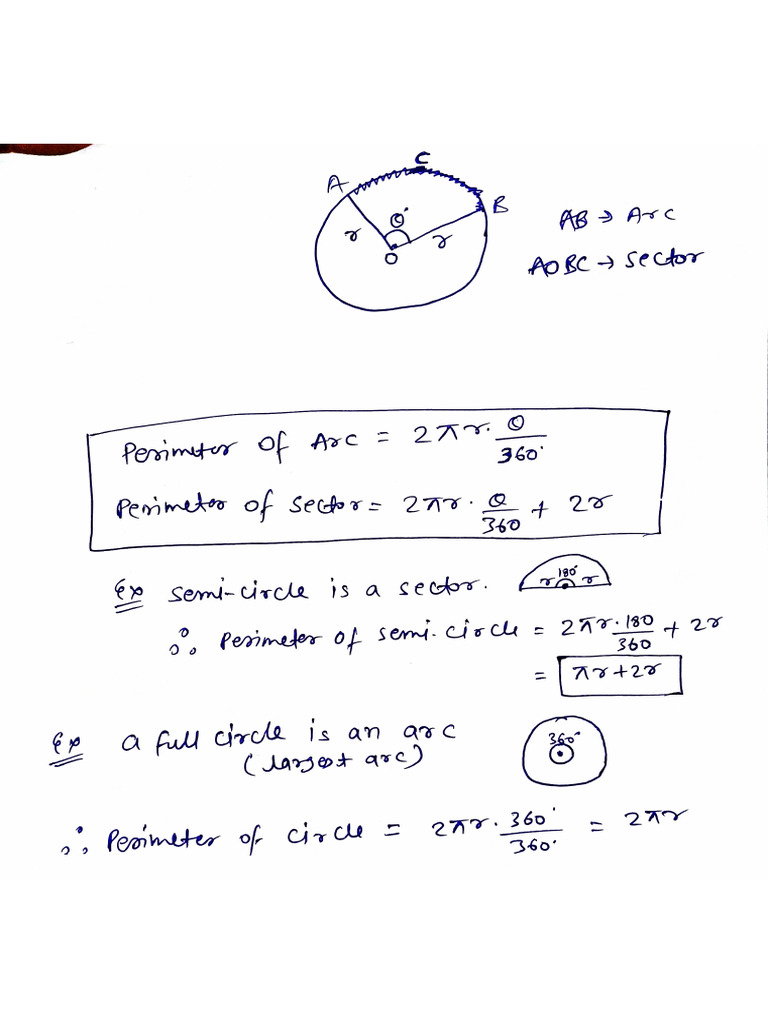 C
A
B
θ°
r
r
O
AB → Arc
AOBC → sector
Perimeter of Arc = 2πr. θ/360°
Perimeter of sector = 2πr . θ/360 + 2r
Ex semi-circle is a sector.
180°
r r
∴ Perimeter of semi-circle = 2πr. 180/360 + 2r
= πr+2r
Ex a full circle is an arc
(largest arc)
360°
∴ Perimeter of circle = 2πr. 360°/360° = 2πr